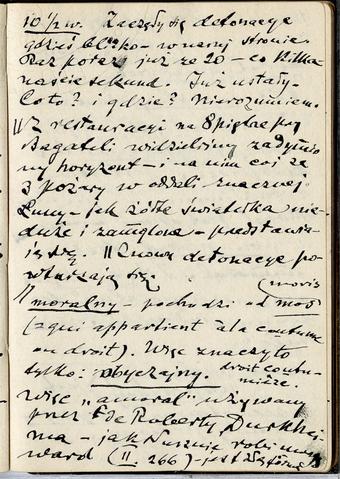 10 1/2 w. Zaczęły się detonacje
gdzieś blizko – w naszej stronie
Raz po raz już ze 20 – co kilka-
naście sekund. Już ustały.
Co to? i gdzie? Nierozumiem.
|| Z restauracji na 8 piętrze przy
Bagateli widzieliśmy zadymio-
ny horyzont – i na nim coś ze
3 pożary w oddali znacznej
Łuny – jak żółte światełka nie-
duże i zamglone – przedstawia-
ją się. || Znowu detonacje po-
wtarzają się.
(moris
|| moralny – pochodzi od mos
(= qui appartient à la coutume
ou droit). Więc znaczyło
tylko: obyczajny. droit coutu-
mière.
Więc "amoral" używany
przez E de Roberty, Durkhei-
ma – jak słusznie robi
ward (II 266) – jest